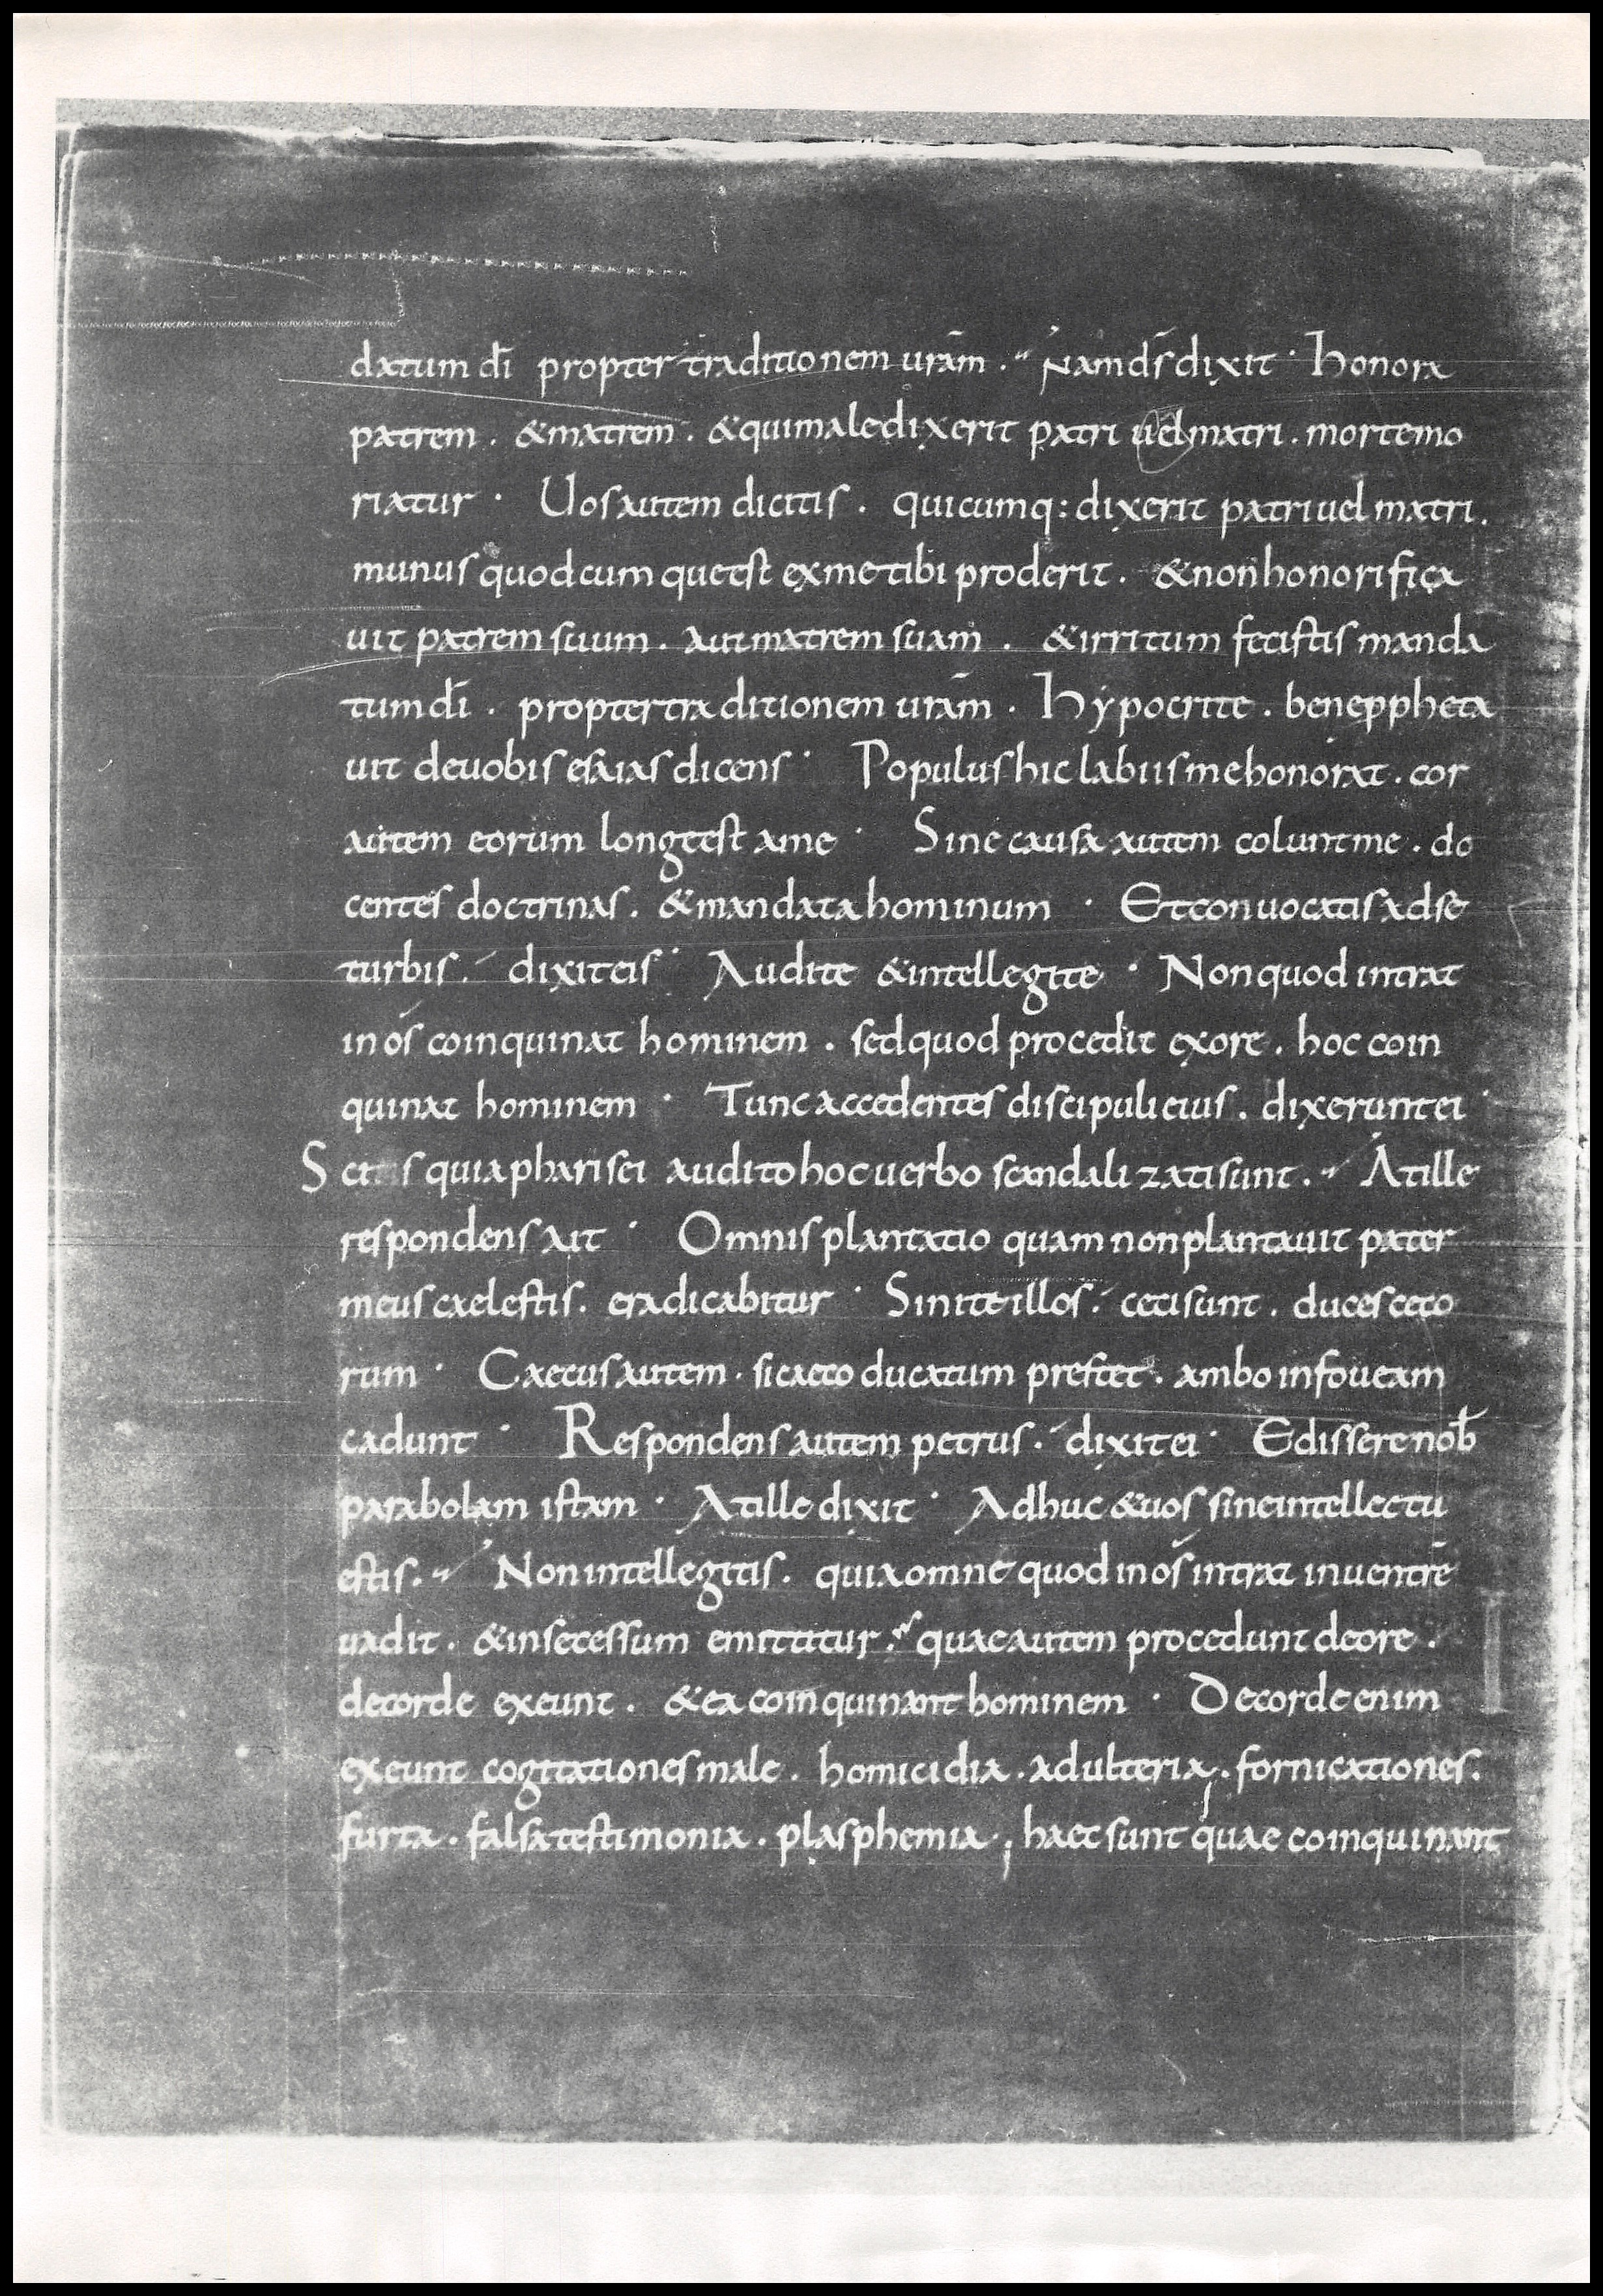 datum dī propter traditionem urām . Nam ds̄ dixit · Honora
patrem . & matrem . & qui maledixerit patri uel matri . morte mo
riatur · Uos autem dicitis . quicumq: dixerit patri uel matri .
munus quodcumque est ex me tibi proderit . & non honorifica
uit patrem suum . aut matrem suam . & irritum fecistis manda
tum dī . propter traditionem urām . Hypocrite . bene ppheta
uit de uobis esaias dicens · Populus hic labiis me honorat . cor
autem eorum longe est a me · Sine causa autem colunt me . do
centes doctrinas . & mandata hominum · Et conuocatis ad se
turbis . dixit eis · Audite & intellegite · Non quod intrat
in os coinquinat hominem . sed quod procedit ex ore . hoc coin
quinat hominem · Tunc accedentes discipuli eius . dixerunt ei ·
Scitis quia pharisei audito hoc uerbo scandalizati sunt . At ille
respondens ait · Omnis plantatio quam non plantauit pater
meus caelestis . eradicabitur · Sinite illos . ceci sunt . duces ceco
rum · Caecus autem . si caeco ducatum prestet . ambo in foueam
cadunt · Respondens autem petrus . dixit ei · Edissere nob̄
parabolam istam · At ille dixit · Adhuc & uos sine intellectu
estis . Non intellegitis . quia omne quod in os intrat in uentrē
uadit . & in secessum emittitur . quae autem procedunt de ore .
de corde exeunt . & ea coinquinant hominem · De corde enim
exeunt cogitationes male . homicidia . adulteria . fornicationes .
furta . falsa testimonia . plasphemia ; haec sunt quae coinquinant